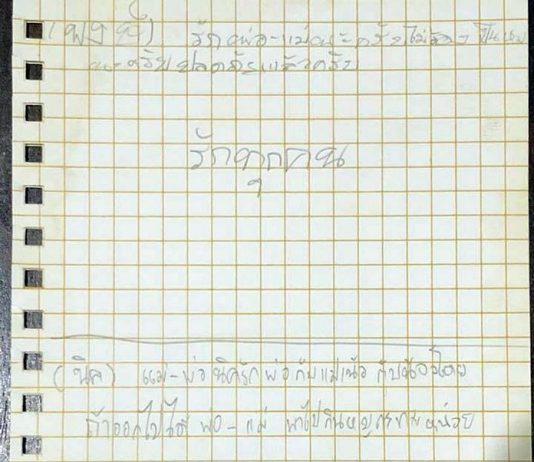 (พงษ์) รักพ่อ-แม่นะครับไม่ต้อง เป็นห่วง
นะครับปลอดภัยแล้วครับ
รักทุกคน
(นิค) แม่-พ่อนิครักพ่อกับแม่แล้ว กับน้องโดย
ถ้าออกไปได้ พ่อ-แม่ พาไปกินหมูกระทะหน่อย